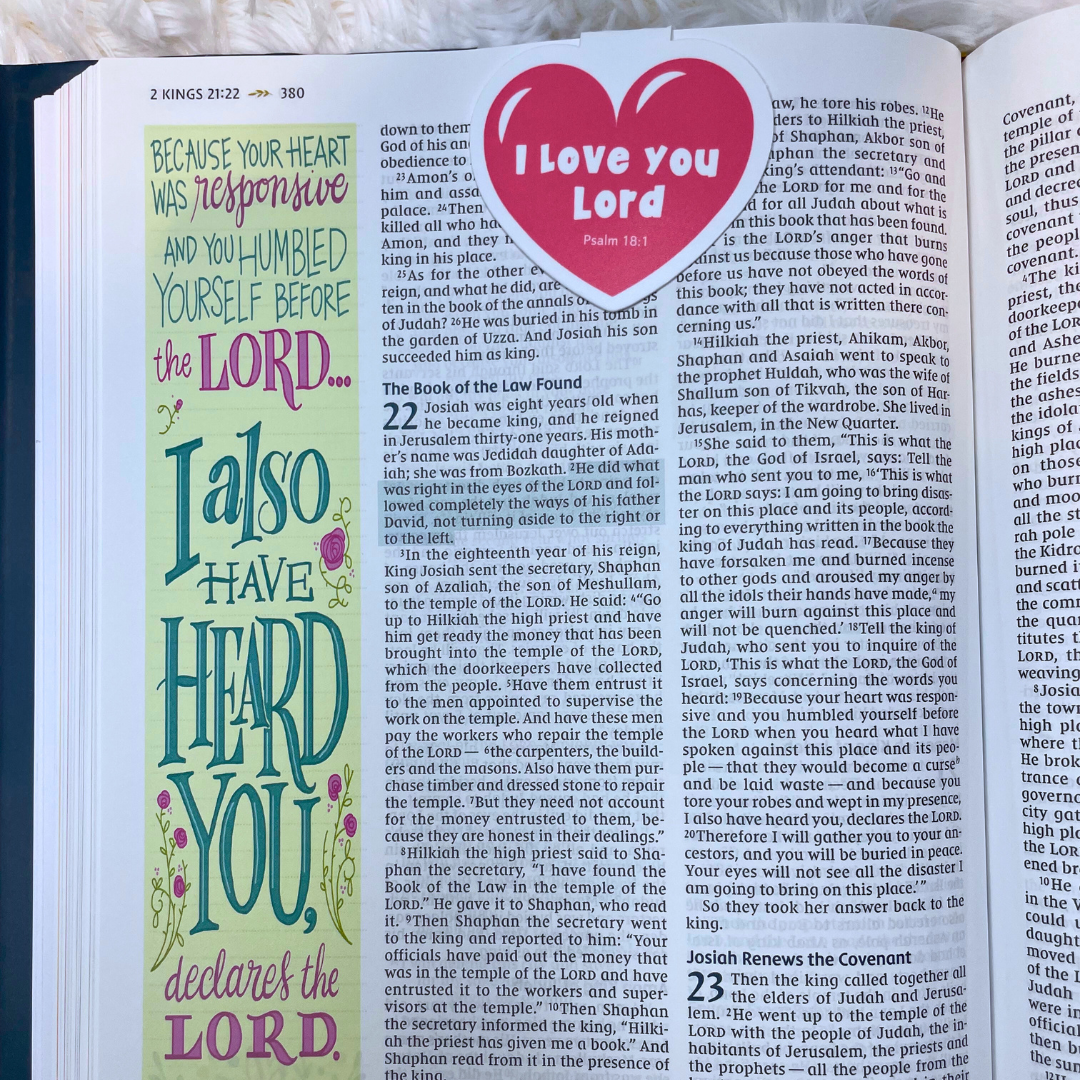 2 KINGS 21:22 380
BECAUSE YOUR HEART
WAS responsive
AND YOU HUMBLED
YOURSELF BEFORE
the LORD...
I also
HAVE
HEARD
YOU,
declares the
LORD.
I Love you
Lord
Psalm 18:1
down to them
God of his an
obedience to
23Amon's o
him and assa
palace. 24Then
killed all who ha
Amon, and they
king in his place.
25As for the other ev
reign, and what he did, are
ten in the book of the annals
of Judah? 26He was buried in his tomb in
the garden of Uzza. And Josiah his son
succeeded him as king.
The Book of the Law Found
22 Josiah was eight years old when
he became king, and he reigned
in Jerusalem thirty-one years. His moth-
er's name was Jedidah daughter of Ada-
iah; she was from Bozkath. 2He did what
was right in the eyes of the LORD and fol-
lowed completely the ways of his father
David, not turning aside to the right or
to the left.
3In the eighteenth year of his reign,
King Josiah sent the secretary, Shaphan
son of Azaliah, the son of Meshullam,
to the temple of the LORD. He said: 4"Go
up to Hilkiah the high priest and have
him get ready the money that has been
brought into the temple of the LORD,
which the doorkeepers have collected
from the people. 5Have them entrust it
to the men appointed to supervise the
work on the temple. And have these men
pay the workers who repair the temple
of the LORD — 6the carpenters, the build-
ers and the masons. Also have them pur-
chase timber and dressed stone to repair
the temple. 7But they need not account
for the money entrusted to them, be-
cause they are honest in their dealings."
8Hilkiah the high priest said to Sha-
phan the secretary, "I have found the
Book of the Law in the temple of the
LORD." He gave it to Shaphan, who read
it. 9Then Shaphan the secretary went
to the king and reported to him: "Your
officials have paid out the money that
was in the temple of the LORD and have
entrusted it to the workers and super-
visors at the temple." 10Then Shaphan
the secretary informed the king, "Hilki-
ah the priest has given me a book." And
Shaphan read from it in the presence of
the king.
aw, he tore his robes. 12He
ders to Hilkiah the priest,
of Shaphan, Akbor son of
aphan the secretary and
ing's attendant: 13"Go and
he LORD for me and for the
d for all Judah about what is
n this book that has been found.
is the LORD's anger that burns
ainst us because those who have gone
before us have not obeyed the words of
this book; they have not acted in accor-
dance with all that is written there con-
cerning us."
14Hilkiah the priest, Ahikam, Akbor,
Shaphan and Asaiah went to speak to
the prophet Huldah, who was the wife of
Shallum son of Tikvah, the son of Har-
has, keeper of the wardrobe. She lived in
Jerusalem, in the New Quarter.
15She said to them, "This is what the
LORD, the God of Israel, says: Tell the
man who sent you to me, 16'This is what
the LORD says: I am going to bring disas-
ter on this place and its people, accord-
ing to everything written in the book the
king of Judah has read. 17Because they
have forsaken me and burned incense
to other gods and aroused my anger by
all the idols their hands have made,a my
anger will burn against this place and
will not be quenched.' 18Tell the king of
Judah, who sent you to inquire of the
LORD, 'This is what the LORD, the God of
Israel, says concerning the words you
heard: 19Because your heart was respon-
sive and you humbled yourself before
the LORD when you heard what I have
spoken against this place and its peo-
ple — that they would become a curseb
and be laid waste — and because you
tore your robes and wept in my presence,
I also have heard you, declares the LORD.
20Therefore I will gather you to your an-
cestors, and you will be buried in peace.
Your eyes will not see all the disaster I
am going to bring on this place.'"
So they took her answer back to the
king.
Josiah Renews the Covenant
23 Then the king called together all
the elders of Judah and Jerusa-
lem. 2He went up to the temple of the
LORD with the people of Judah, the in-
habitants of Jerusalem, the priests and
the prophets — all the people from the
Covenant,
temple of
the pillar
the presen
LORD and
and decree
soul, thus
covenant
the peopl
covenant.
4The ki
priest, the
doorkeepe
of the LOR
and Ashe
He burne
the fields
the ashes
the idola
kings of
high plac
on those
who burn
and moo
all the st
rah pole
the Kidro
burned it
and scatt
the comm
the quar
titutes t
LORD, th
weaving
8Josia
the town
high pl
where th
He brok
trance
governo
city gat
high pl
the LOR
ened br
10He
in the V
could u
daught
moved
of the L
Judah
were in
official
then bu
the sun